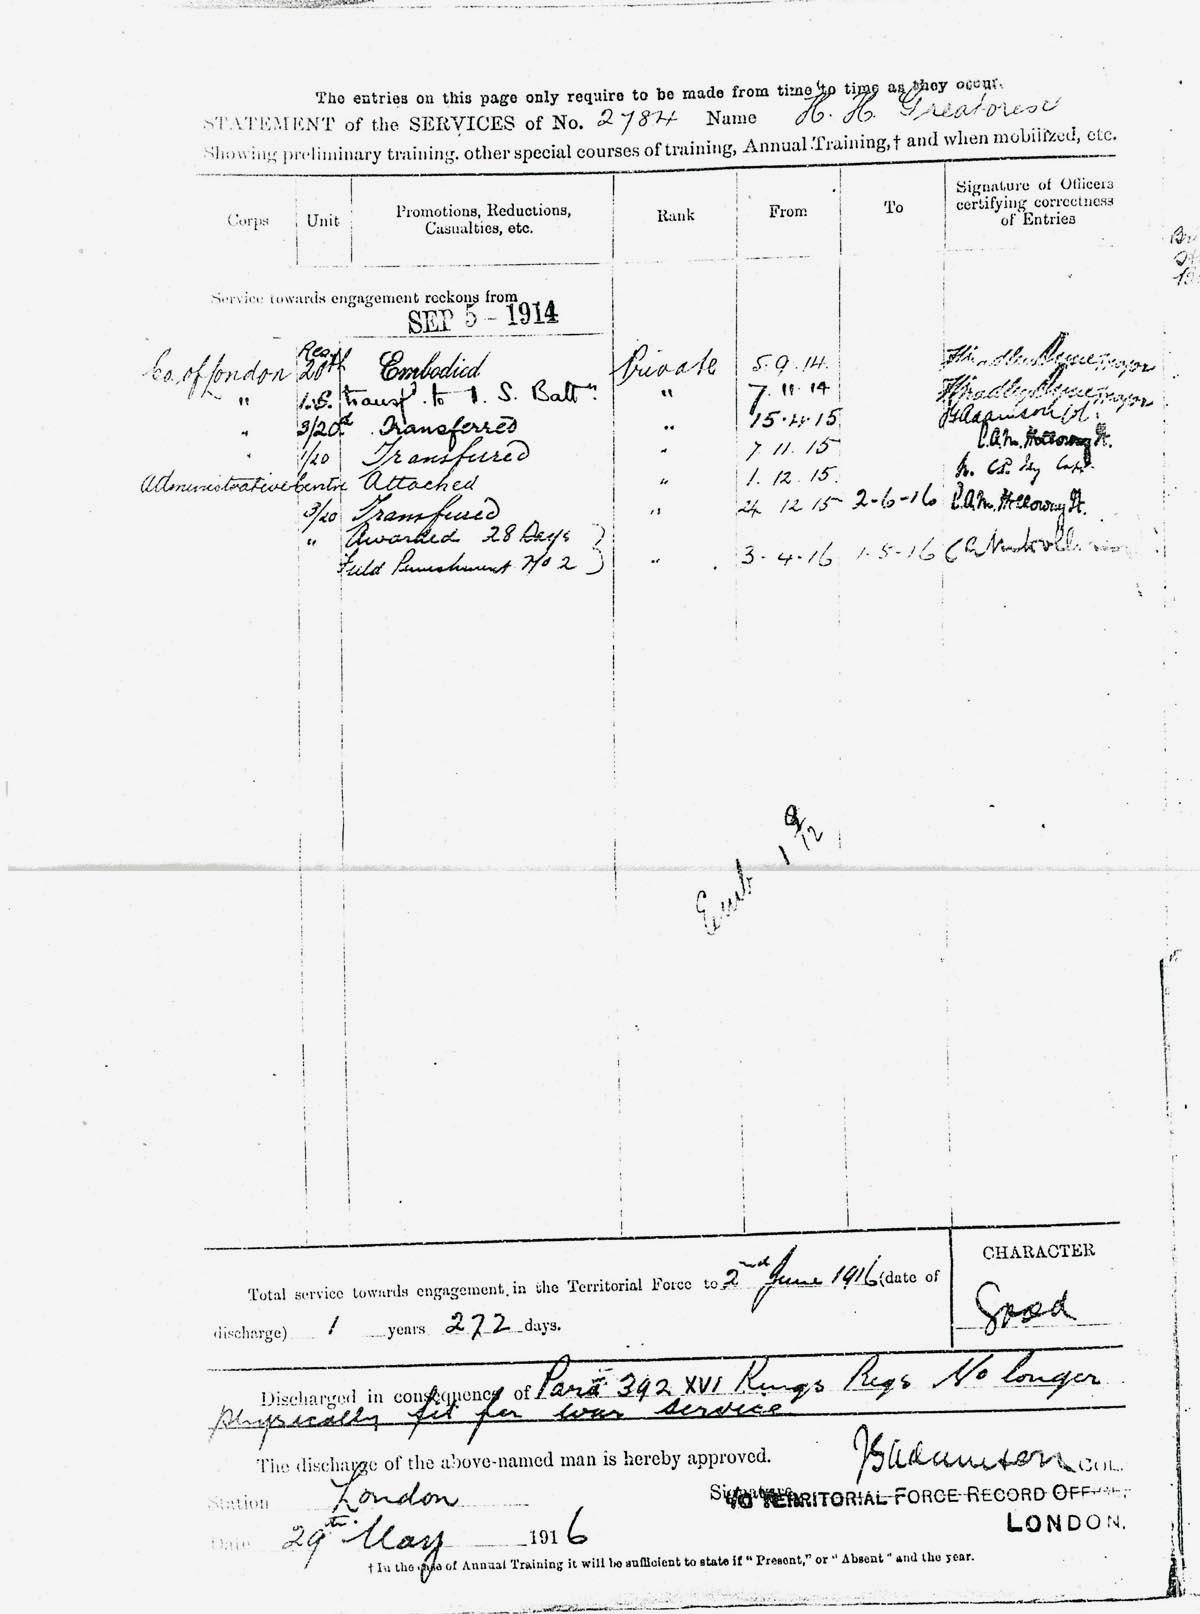 The entries on this page only require to be made from time to time as they occur.
STATEMENT of the SERVICES of No. 2784 Name H. H. Greatorex
Showing preliminary training, other special courses of training, Annual Training,† and when mobilized, etc.
Corps Unit Promotions, Reductions, Casualties, etc. Rank From To Signature of Officers certifying correctness of Entries
Service towards engagement reckons from
SEP 5 - 1914
Co. of London 20th Embodied Private 5.9.14. Major
" 1.S. transf. to 1. S. Batt". " 7.11.14 Major
" 3/20 Transferred " 15.4.15 Adamson
" 1/20 Transferred " 7.11.15 C.A.M. Holloway Lt.
Administrative Centre Attached " 1.12.15. Capt.
3/20 Transferred " 24 12 15 2-6-16 C.A.M. Holloway Lt.
" Awarded 28 Days }
Field Punishment No 2 } " 3-4-16 1-5-16
Emb 1 12
Total service towards engagement in the Territorial Force to 2nd June 1916 (date of
discharge) 1 years 272 days.
CHARACTER
Good
Discharged in consequence of Para 392 XVI Kings Regs No longer
physically fit for war service
The discharge of the above-named man is hereby approved.
Signature Adamson COL.
I/C TERRITORIAL FORCE RECORD OFFICE,
LONDON.
Station London
Date 29th May 1916
† In the case of Annual Training it will be sufficient to state if "Present," or "Absent" and the year.